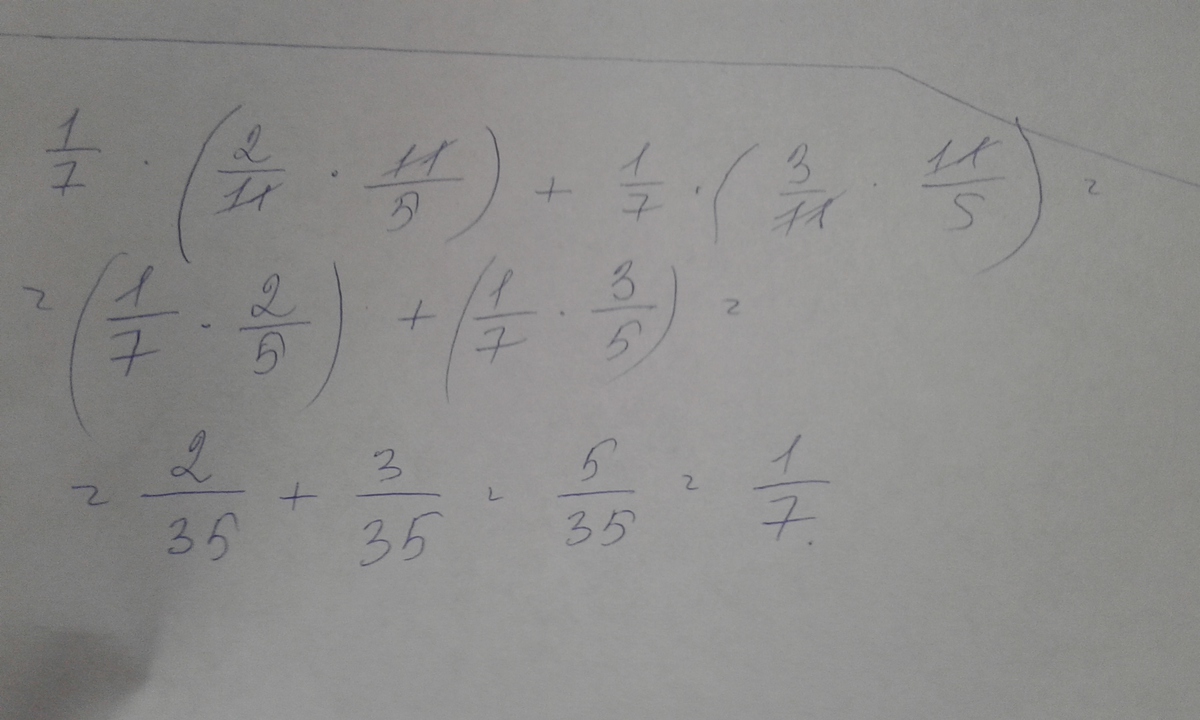 1/7 · (2/11 · 11/5) + 1/7 · (3/11 · 11/5) =
= (1/7 · 2/5) + (1/7 · 3/5) =
= 2/35 + 3/35 = 5/35 = 1/7.